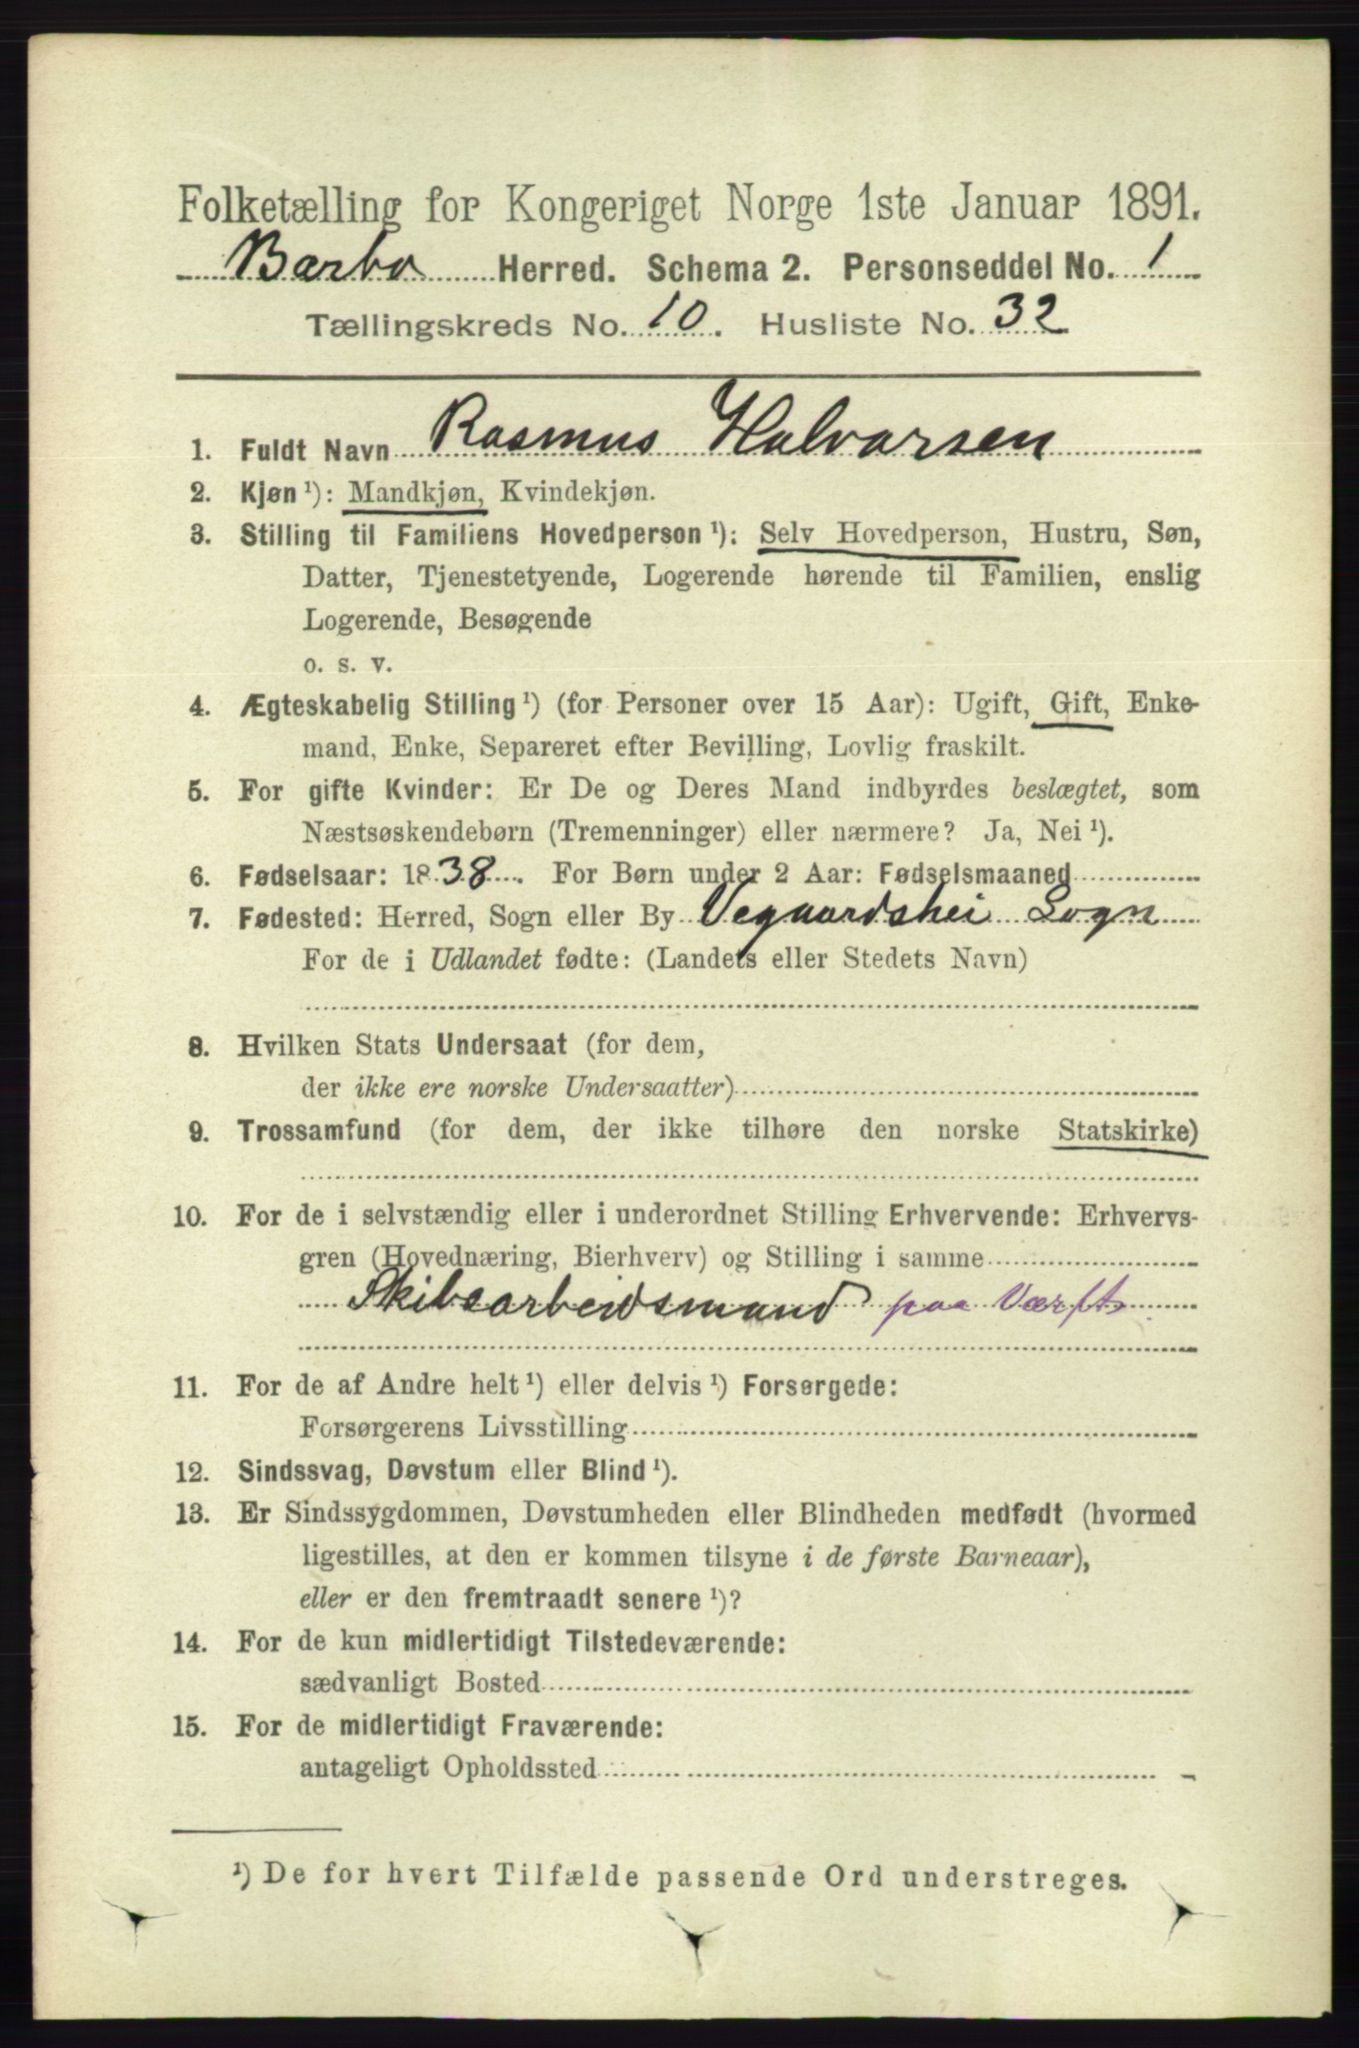 Folketælling for Kongeriget Norge 1ste Januar 1891.
Barbo Herred. Schema 2. Personseddel No. 1
Tællingskreds No. 10. Husliste No. 32
1. Fuldt Navn Rasmus Halvorsen
2. Kjøn ¹): Mandkjøn, Kvindekjøn.
3. Stilling til Familiens Hovedperson ¹): Selv Hovedperson, Hustru, Søn,
Datter, Tjenestetyende, Logerende hørende til Familien, enslig
Logerende, Besøgende
o. s. v.
4. Ægteskabelig Stilling ¹) (for Personer over 15 Aar): Ugift, Gift, Enke-
mand, Enke, Separeret efter Bevilling, Lovlig fraskilt.
5. For gifte Kvinder: Er De og Deres Mand indbyrdes beslægtet, som
Næstsøskendebørn (Tremenninger) eller nærmere? Ja, Nei ¹).
6. Fødselsaar: 1838. For Børn under 2 Aar: Fødselsmaaned
7. Fødested: Herred, Sogn eller By Vegaardshei Sogn
For de i Udlandet fødte: (Landets eller Stedets Navn)
8. Hvilken Stats Undersaat (for dem,
der ikke ere norske Undersaatter)
9. Trossamfund (for dem, der ikke tilhøre den norske Statskirke)
10. For de i selvstændig eller i underordnet Stilling Erhvervende: Erhvervs-
gren (Hovednæring, Bierhverv) og Stilling i samme
Skibsarbeidsmand paa Værft.
11. For de af Andre helt ¹) eller delvis ¹) Forsørgede:
Forsørgerens Livsstilling
12. Sindssvag, Døvstum eller Blind ¹).
13. Er Sindssygdommen, Døvstumheden eller Blindheden medfødt (hvormed
ligestilles, at den er kommen tilsyne i de første Barneaar),
eller er den fremtraadt senere ¹)?
14. For de kun midlertidigt Tilstedeværende:
sædvanligt Bosted
15. For de midlertidigt Fraværende:
antageligt Opholdssted
¹) De for hvert Tilfælde passende Ord understreges.